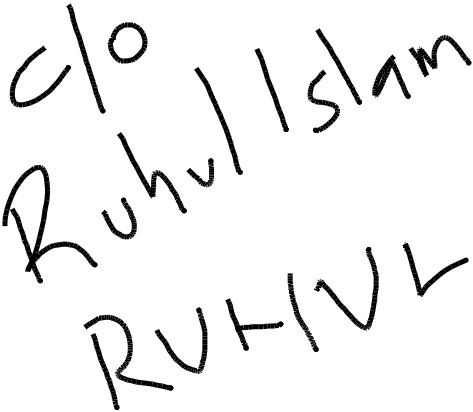 c/o
Ruhul Islam
RUHUL